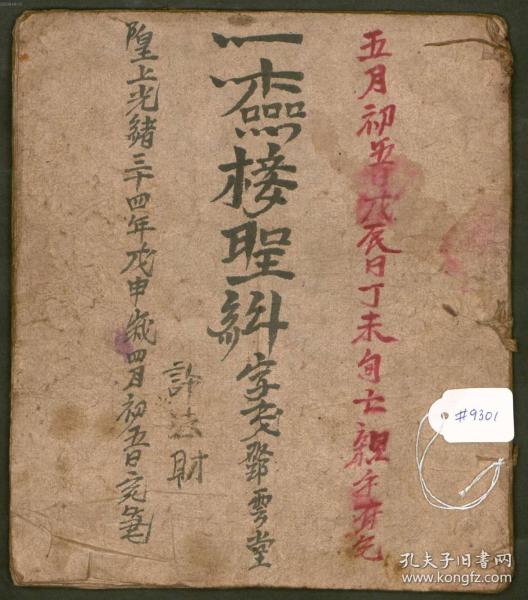 五月初五日戊辰日丁未旬亡親手有乞
接聖科字文發雲堂
許法財
隍上光緒三十四年戊申歲四月初五日完筆
#9301
孔夫子旧书网
www.kongfz.com